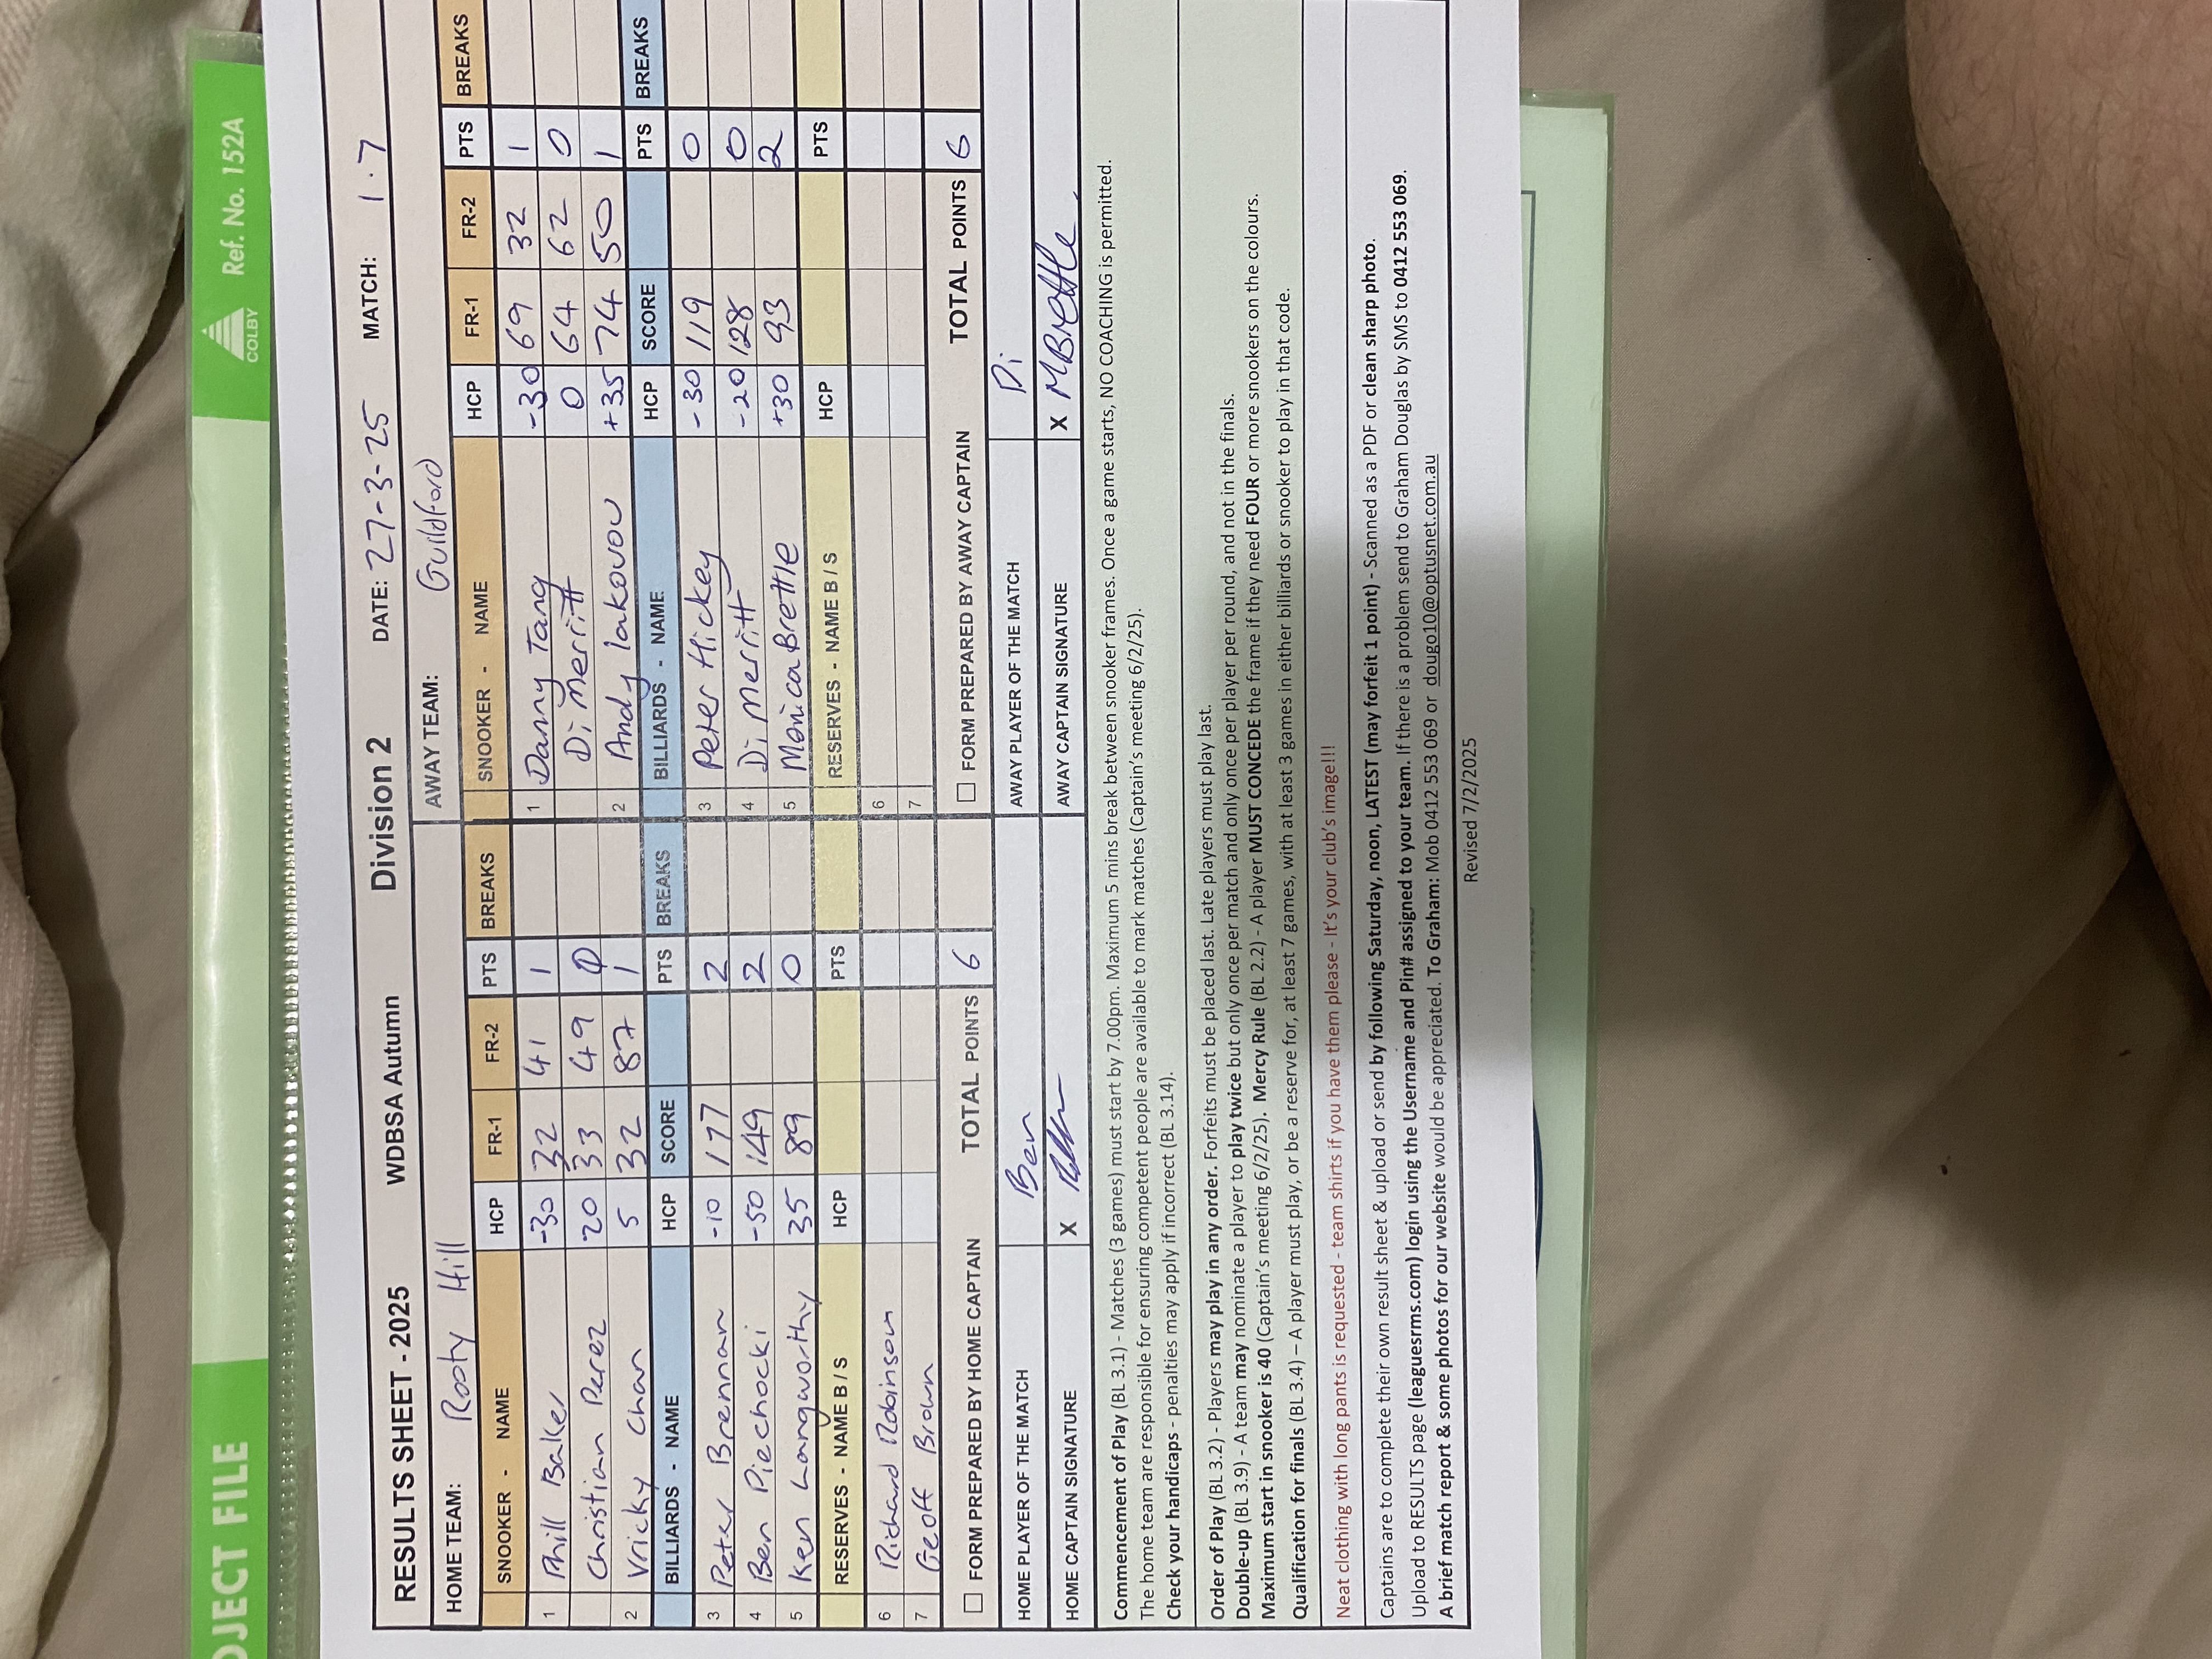 PROJECT FILE COLBY Ref. No. 152A
RESULTS SHEET - 2025 WDBSA Autumn Division 2 DATE: 27-3-25 MATCH: 1.7
HOME TEAM: Rooty Hill AWAY TEAM: Guildford
SNOOKER - NAME HCP FR-1 FR-2 PTS BREAKS SNOOKER - NAME HCP FR-1 FR-2 PTS BREAKS
1 Phill Baker -30 32 41 1 1 Danny Tang -30 69 32 1
Christian Perez -20 33 49 0 Di Merritt 0 64 62 0
2 Vricky Chan 5 32 87 1 2 Andy Iakovou +35 74 50 1
BILLIARDS - NAME HCP SCORE PTS BREAKS BILLIARDS - NAME HCP SCORE PTS BREAKS
3 Peter Brennan -10 177 2 3 Peter Hickey -30 119 0
4 Ben Piechocki -50 149 2 4 Di Merritt -20 128 0
5 Ken Langworthy 35 89 0 5 Monica Brettle +30 93 2
RESERVES - NAME B / S HCP PTS RESERVES - NAME B / S HCP PTS
6 Richard Robinson 6
7 Geoff Brown 7
FORM PREPARED BY HOME CAPTAIN TOTAL POINTS 6 FORM PREPARED BY AWAY CAPTAIN TOTAL POINTS 6
HOME PLAYER OF THE MATCH Ben AWAY PLAYER OF THE MATCH Di
HOME CAPTAIN SIGNATURE X AWAY CAPTAIN SIGNATURE X MBrettle
Commencement of Play (BL 3.1) - Matches (3 games) must start by 7.00pm. Maximum 5 mins break between snooker frames. Once a game starts, NO COACHING is permitted.
The home team are responsible for ensuring competent people are available to mark matches (Captain's meeting 6/2/25).
Check your handicaps - penalties may apply if incorrect (BL 3.14).
Order of Play (BL 3.2) - Players may play in any order. Forfeits must be placed last. Late players must play last.
Double-up (BL 3.9) - A team may nominate a player to play twice but only once per match and only once per player per round, and not in the finals.
Maximum start in snooker is 40 (Captain's meeting 6/2/25). Mercy Rule (BL 2.2) - A player MUST CONCEDE the frame if they need FOUR or more snookers on the colours.
Qualification for finals (BL 3.4) – A player must play, or be a reserve for, at least 7 games, with at least 3 games in either billiards or snooker to play in that code.
Neat clothing with long pants is requested - team shirts if you have them please - It's your club's image!!!
Captains are to complete their own result sheet & upload or send by following Saturday, noon, LATEST (may forfeit 1 point) - Scanned as a PDF or clean sharp photo.
Upload to RESULTS page (leaguesrms.com) login using the Username and Pin# assigned to your team. If there is a problem send to Graham Douglas by SMS to 0412 553 069.
A brief match report & some photos for our website would be appreciated. To Graham: Mob 0412 553 069 or dougo10@optusnet.com.au
Revised 7/2/2025